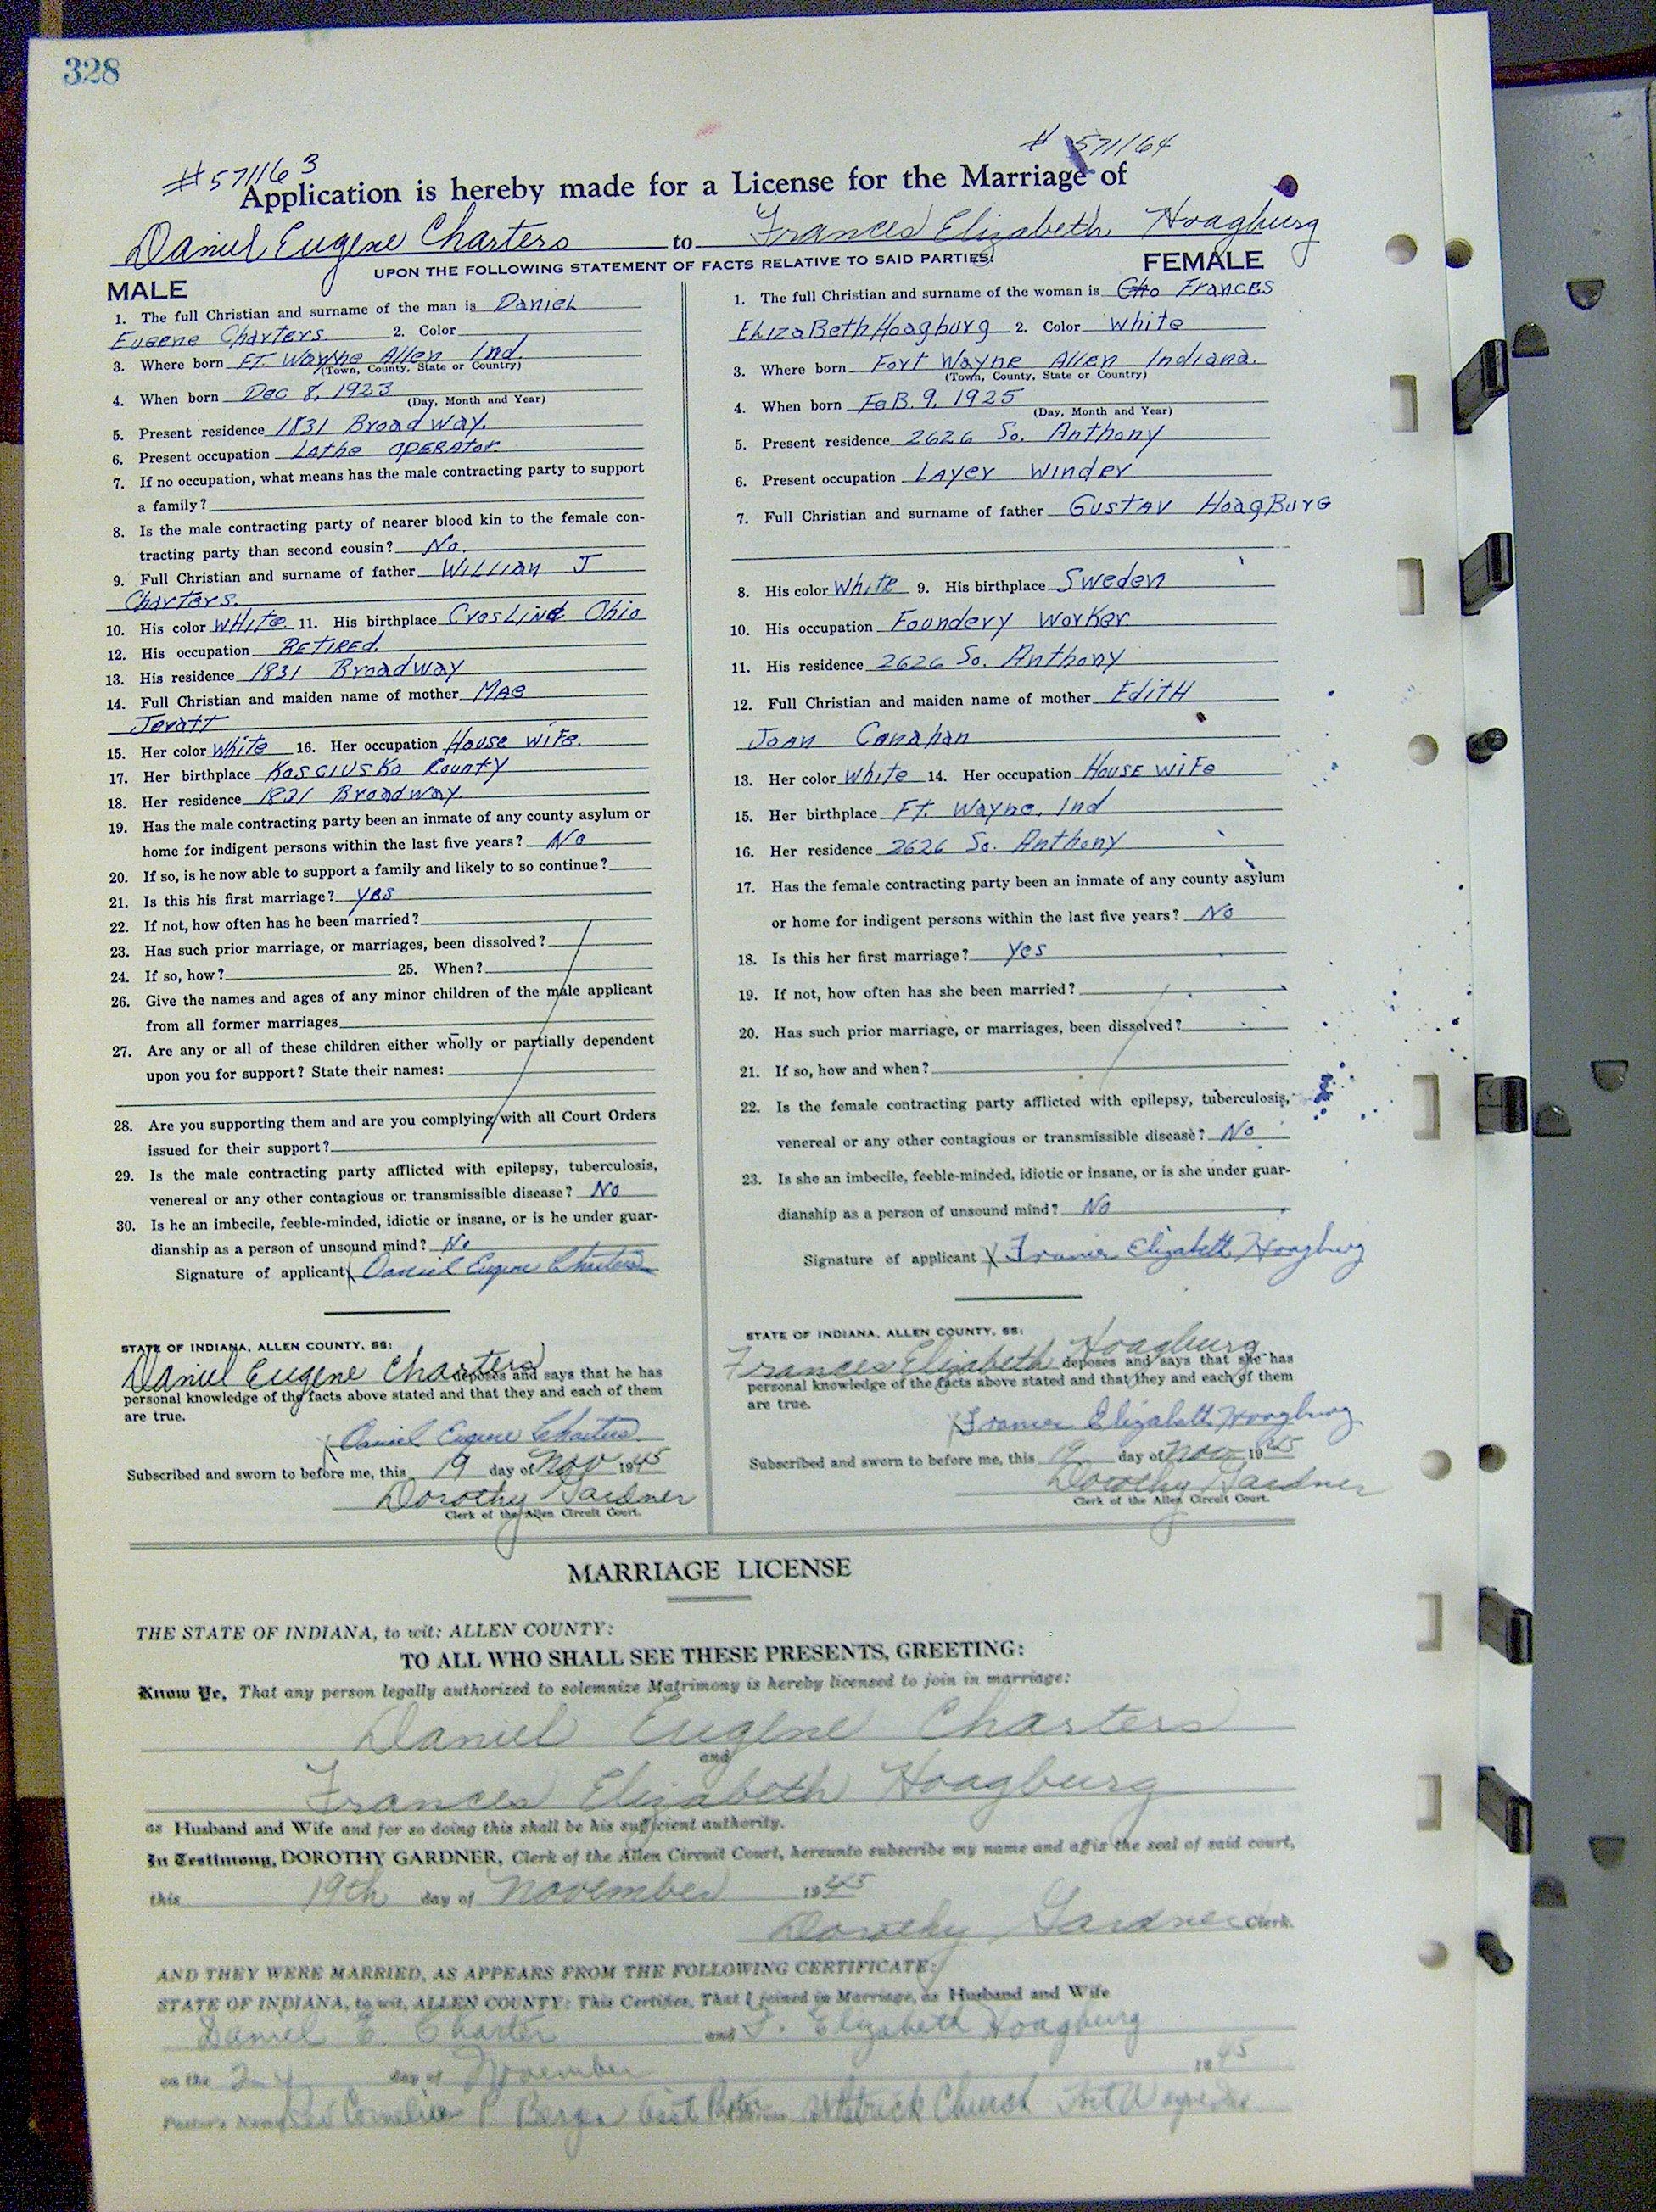 328
#571163
# 571164
Application is hereby made for a License for the Marriage of
Daniel Eugene Charters to Frances Elizabeth Hoagburg
UPON THE FOLLOWING STATEMENT OF FACTS RELATIVE TO SAID PARTIES:
MALE
1. The full Christian and surname of the man is Daniel
Eugene Charters 2. Color
3. Where born FT. Wayne Allen Ind.
(Town, County, State or Country)
4. When born Dec 8, 1923
(Day, Month and Year)
5. Present residence 1831 Broadway.
6. Present occupation Lathe OPERAtor.
7. If no occupation, what means has the male contracting party to support
a family?
8. Is the male contracting party of nearer blood kin to the female con-
tracting party than second cousin? No.
9. Full Christian and surname of father William J
Charters.
10. His color WHite. 11. His birthplace Ohio
12. His occupation RETIREd.
13. His residence 1831 Broadway
14. Full Christian and maiden name of mother Mae
Jevatt
15. Her color White 16. Her occupation House wiFe.
17. Her birthplace Kosciusko County
18. Her residence 1831 Broadway.
19. Has the male contracting party been an inmate of any county asylum or
home for indigent persons within the last five years? No
20. If so, is he now able to support a family and likely to so continue?
21. Is this his first marriage? yes
22. If not, how often has he been married?
23. Has such prior marriage, or marriages, been dissolved?
24. If so, how? 25. When?
26. Give the names and ages of any minor children of the male applicant
from all former marriages
27. Are any or all of these children either wholly or partially dependent
upon you for support? State their names:
28. Are you supporting them and are you complying with all Court Orders
issued for their support?
29. Is the male contracting party afflicted with epilepsy, tuberculosis,
venereal or any other contagious or transmissible disease? No
30. Is he an imbecile, feeble-minded, idiotic or insane, or is he under guar-
dianship as a person of unsound mind? No
Signature of applicant Daniel Eugene Charters
STATE OF INDIANA, ALLEN COUNTY, SS:
Daniel Eugene Charters deposes and says that he has
personal knowledge of the facts above stated and that they and each of them
are true.
Daniel Eugene Charters
Subscribed and sworn to before me, this 19 day of Nov 1945
Dorothy Gardner
Clerk of the Allen Circuit Court.
FEMALE
1. The full Christian and surname of the woman is Frances
ElizaBeth Hoagburg 2. Color White
3. Where born Fort Wayne Allen Indiana.
(Town, County, State or Country)
4. When born FeB. 9, 1925
(Day, Month and Year)
5. Present residence 2626 So. Anthony
6. Present occupation LAyer Winder
7. Full Christian and surname of father GUSTAV HoagBurG
8. His color White 9. His birthplace Sweden
10. His occupation Foundery WorKer.
11. His residence 2626 So. Anthony
12. Full Christian and maiden name of mother EditH
Joan Canahan
13. Her color White 14. Her occupation HOUSE WiFe
15. Her birthplace Ft. Wayne, Ind
16. Her residence 2626 So. Anthony
17. Has the female contracting party been an inmate of any county asylum
or home for indigent persons within the last five years? No
18. Is this her first marriage? yes
19. If not, how often has she been married?
20. Has such prior marriage, or marriages, been dissolved?
21. If so, how and when?
22. Is the female contracting party afflicted with epilepsy, tuberculosis,
venereal or any other contagious or transmissible disease? No
23. Is she an imbecile, feeble-minded, idiotic or insane, or is she under guar-
dianship as a person of unsound mind? No
Signature of applicant X Frances Elizabeth Hoagburg
STATE OF INDIANA, ALLEN COUNTY, SS:
Frances Elizabeth Hoagburg deposes and says that she has
personal knowledge of the facts above stated and that they and each of them
are true.
Frances Elizabeth Hoagburg
Subscribed and sworn to before me, this 19 day of Nov 1945
Dorothy Gardner
Clerk of the Allen Circuit Court.
MARRIAGE LICENSE
THE STATE OF INDIANA, to wit: ALLEN COUNTY:
TO ALL WHO SHALL SEE THESE PRESENTS, GREETING:
Know Ye, That any person legally authorized to solemnize Matrimony is hereby licensed to join in marriage:
Daniel Eugene Charters
and
Frances Elizabeth Hoagburg
as Husband and Wife and for so doing this shall be his sufficient authority.
In Testimony, DOROTHY GARDNER, Clerk of the Allen Circuit Court, hereunto subscribe my name and affix the seal of said court,
this 19th day of November 1945
Dorothy Gardner Clerk.
AND THEY WERE MARRIED, AS APPEARS FROM THE FOLLOWING CERTIFICATE:
STATE OF INDIANA, to wit, ALLEN COUNTY: This Certifies, That I joined in Marriage, as Husband and Wife
Daniel E. Charter and F. Elizabeth Hoagburg
on the 24 day of November 1945
Pastor's Name Rev Cornelius P. Bergen Asst Pastor St Patrick Church Fort Wayne Ind